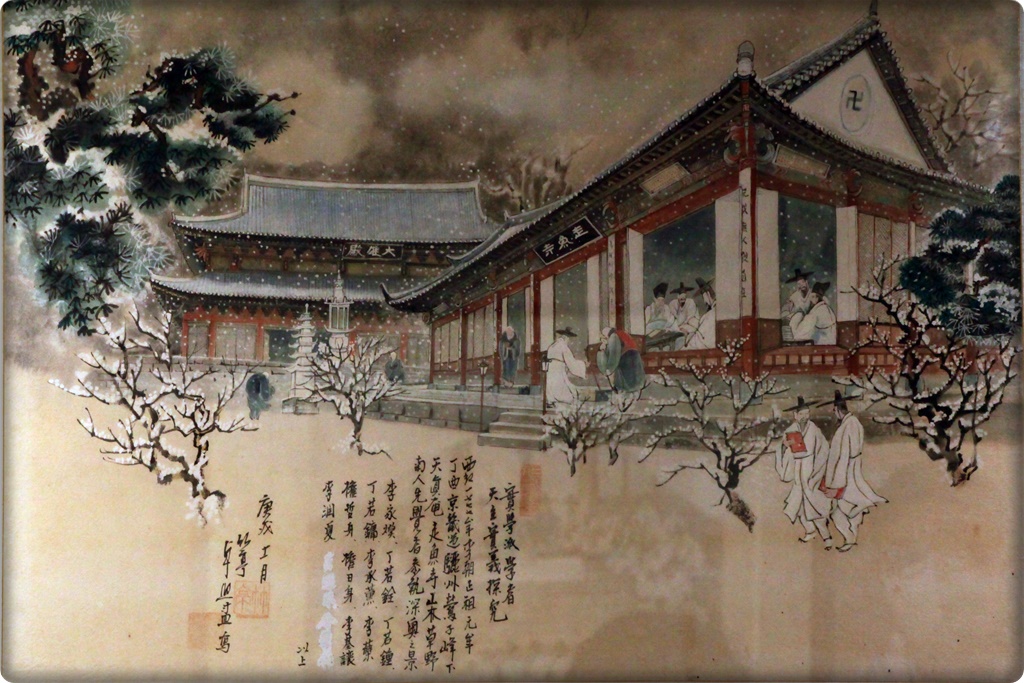 卍
大雄殿
走魚寺
實學派學者
天主實義探究
西紀一七七七年李朝正祖元年
丁酉京畿道驪州鶯子峰下
天眞庵走魚寺
南人先覺者 深奧之景
李家煥、丁若銓、丁若鍾
丁若鏞、李承薰、李蘗
權哲身、權日身、李基讓
李潤夏
以上
庚戌 月
竹亭
寫